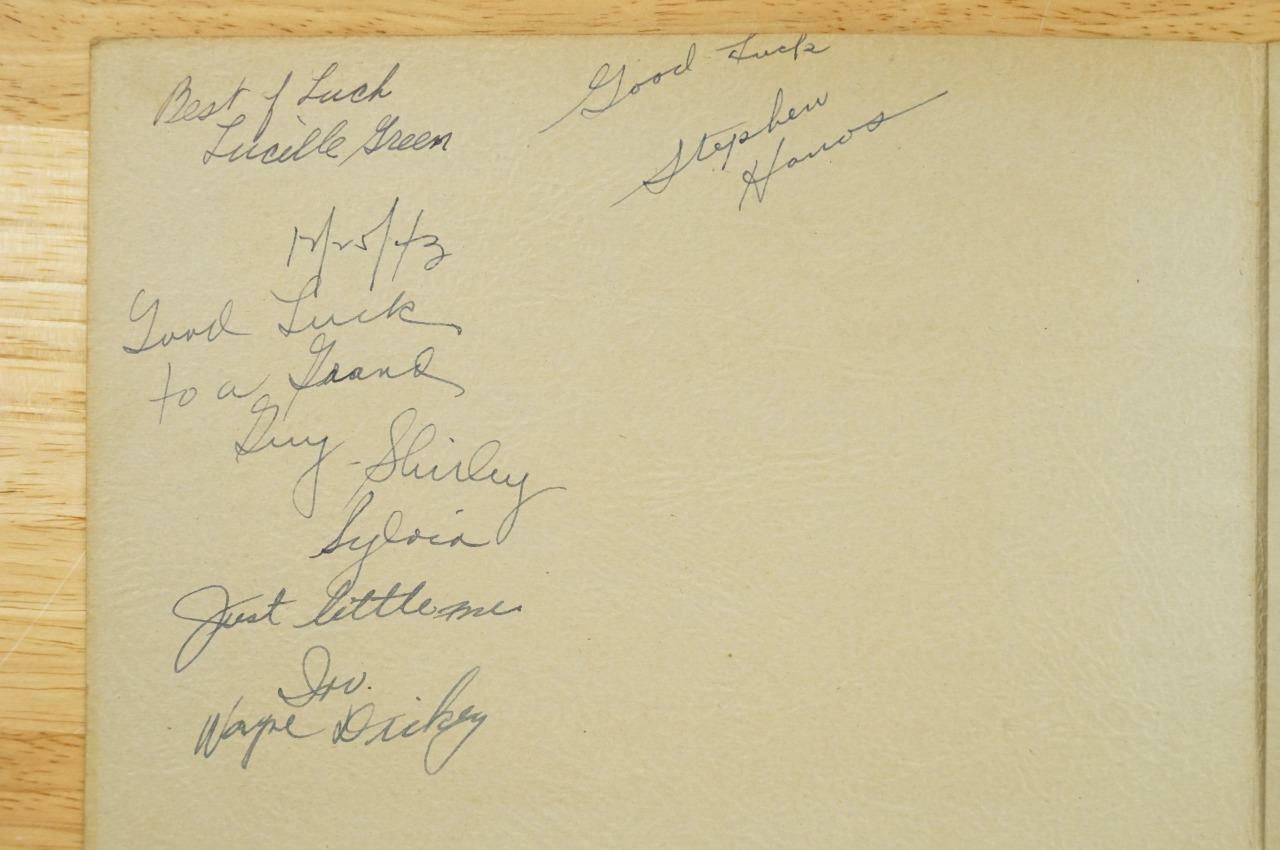 Best of Luck
Lucille Green
Good Luck
Stephen
12/25/43
Good Luck
to a Grand
Guy - Shirley
Sylvia
Just little me
Irv.
Wayne Dickey